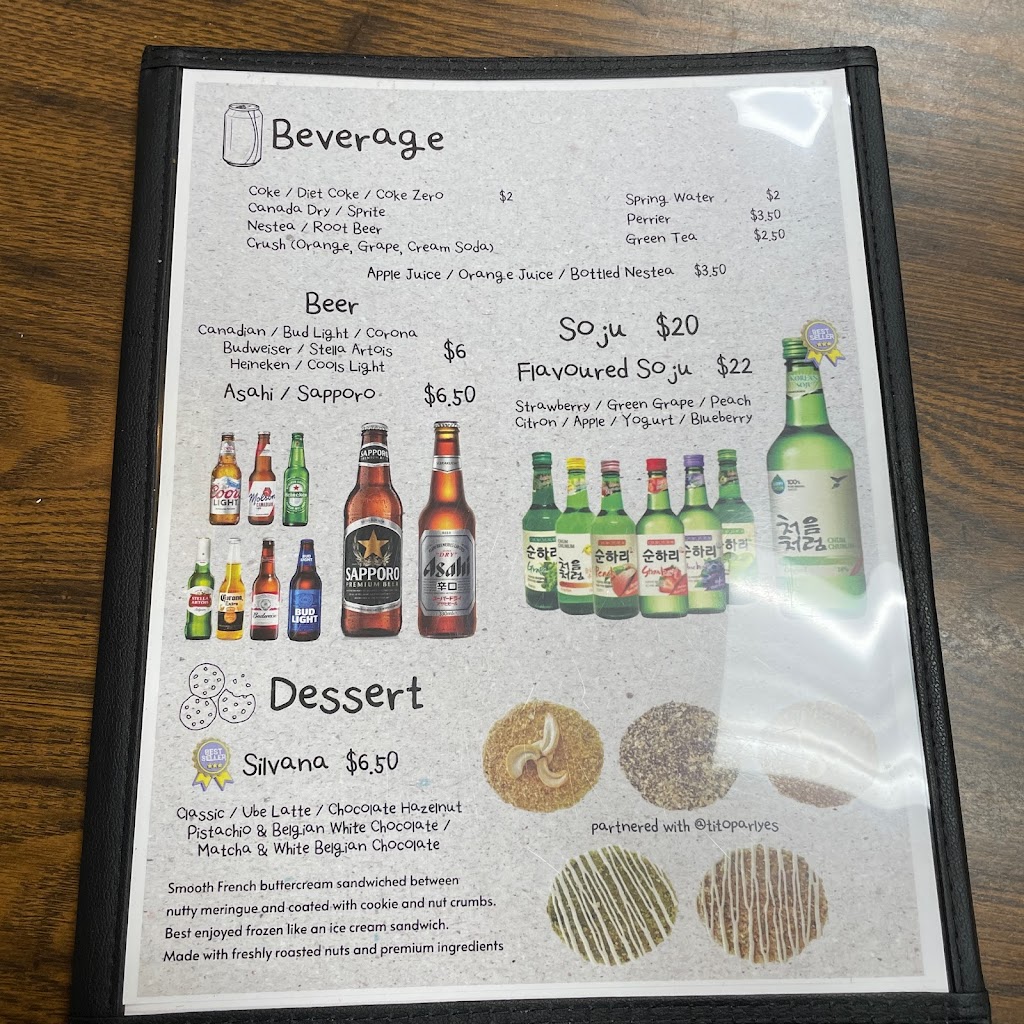 Beverage
Coke / Diet Coke / Coke Zero $2
Canada Dry / Sprite
Nestea / Root Beer
Crush (Orange, Grape, Cream Soda)
Spring Water $2
Perrier $3.50
Green Tea $2.50
Apple Juice / Orange Juice / Bottled Nestea $3.50
Beer
Canadian / Bud Light / Corona
Budweiser / Stella Artois
Heineken / Cools Light
$6
Asahi / Sapporo $6.50
Soju $20
Flavoured Soju $22
Strawberry / Green Grape / Peach
Citron / Apple / Yogurt / Blueberry
BEST
SELLER
Coors
LIGHT
Molson
CANADIAN
Heineken
STELLA
ARTOIS
Corona
Extra
Budweiser
BUD
LIGHT
SAPPORO
SAPPORO
PREMIUM BEER
DRY
Asahi
辛口
순하리
처음
처럼
순하리
순하리
순하리
순하리
KOREAN
SOJU
100%
처음
처럼
CHUM
CHURUM
Dessert
BEST
SELLER
Silvana $6.50
Classic / Ube Latte / Chocolate Hazelnut
Pistachio & Belgian White Chocolate /
Matcha & White Belgian Chocolate
partnered with @titoparlyes
Smooth French buttercream sandwiched between
nutty meringue and coated with cookie and nut crumbs.
Best enjoyed frozen like an ice cream sandwich.
Made with freshly roasted nuts and premium ingredients